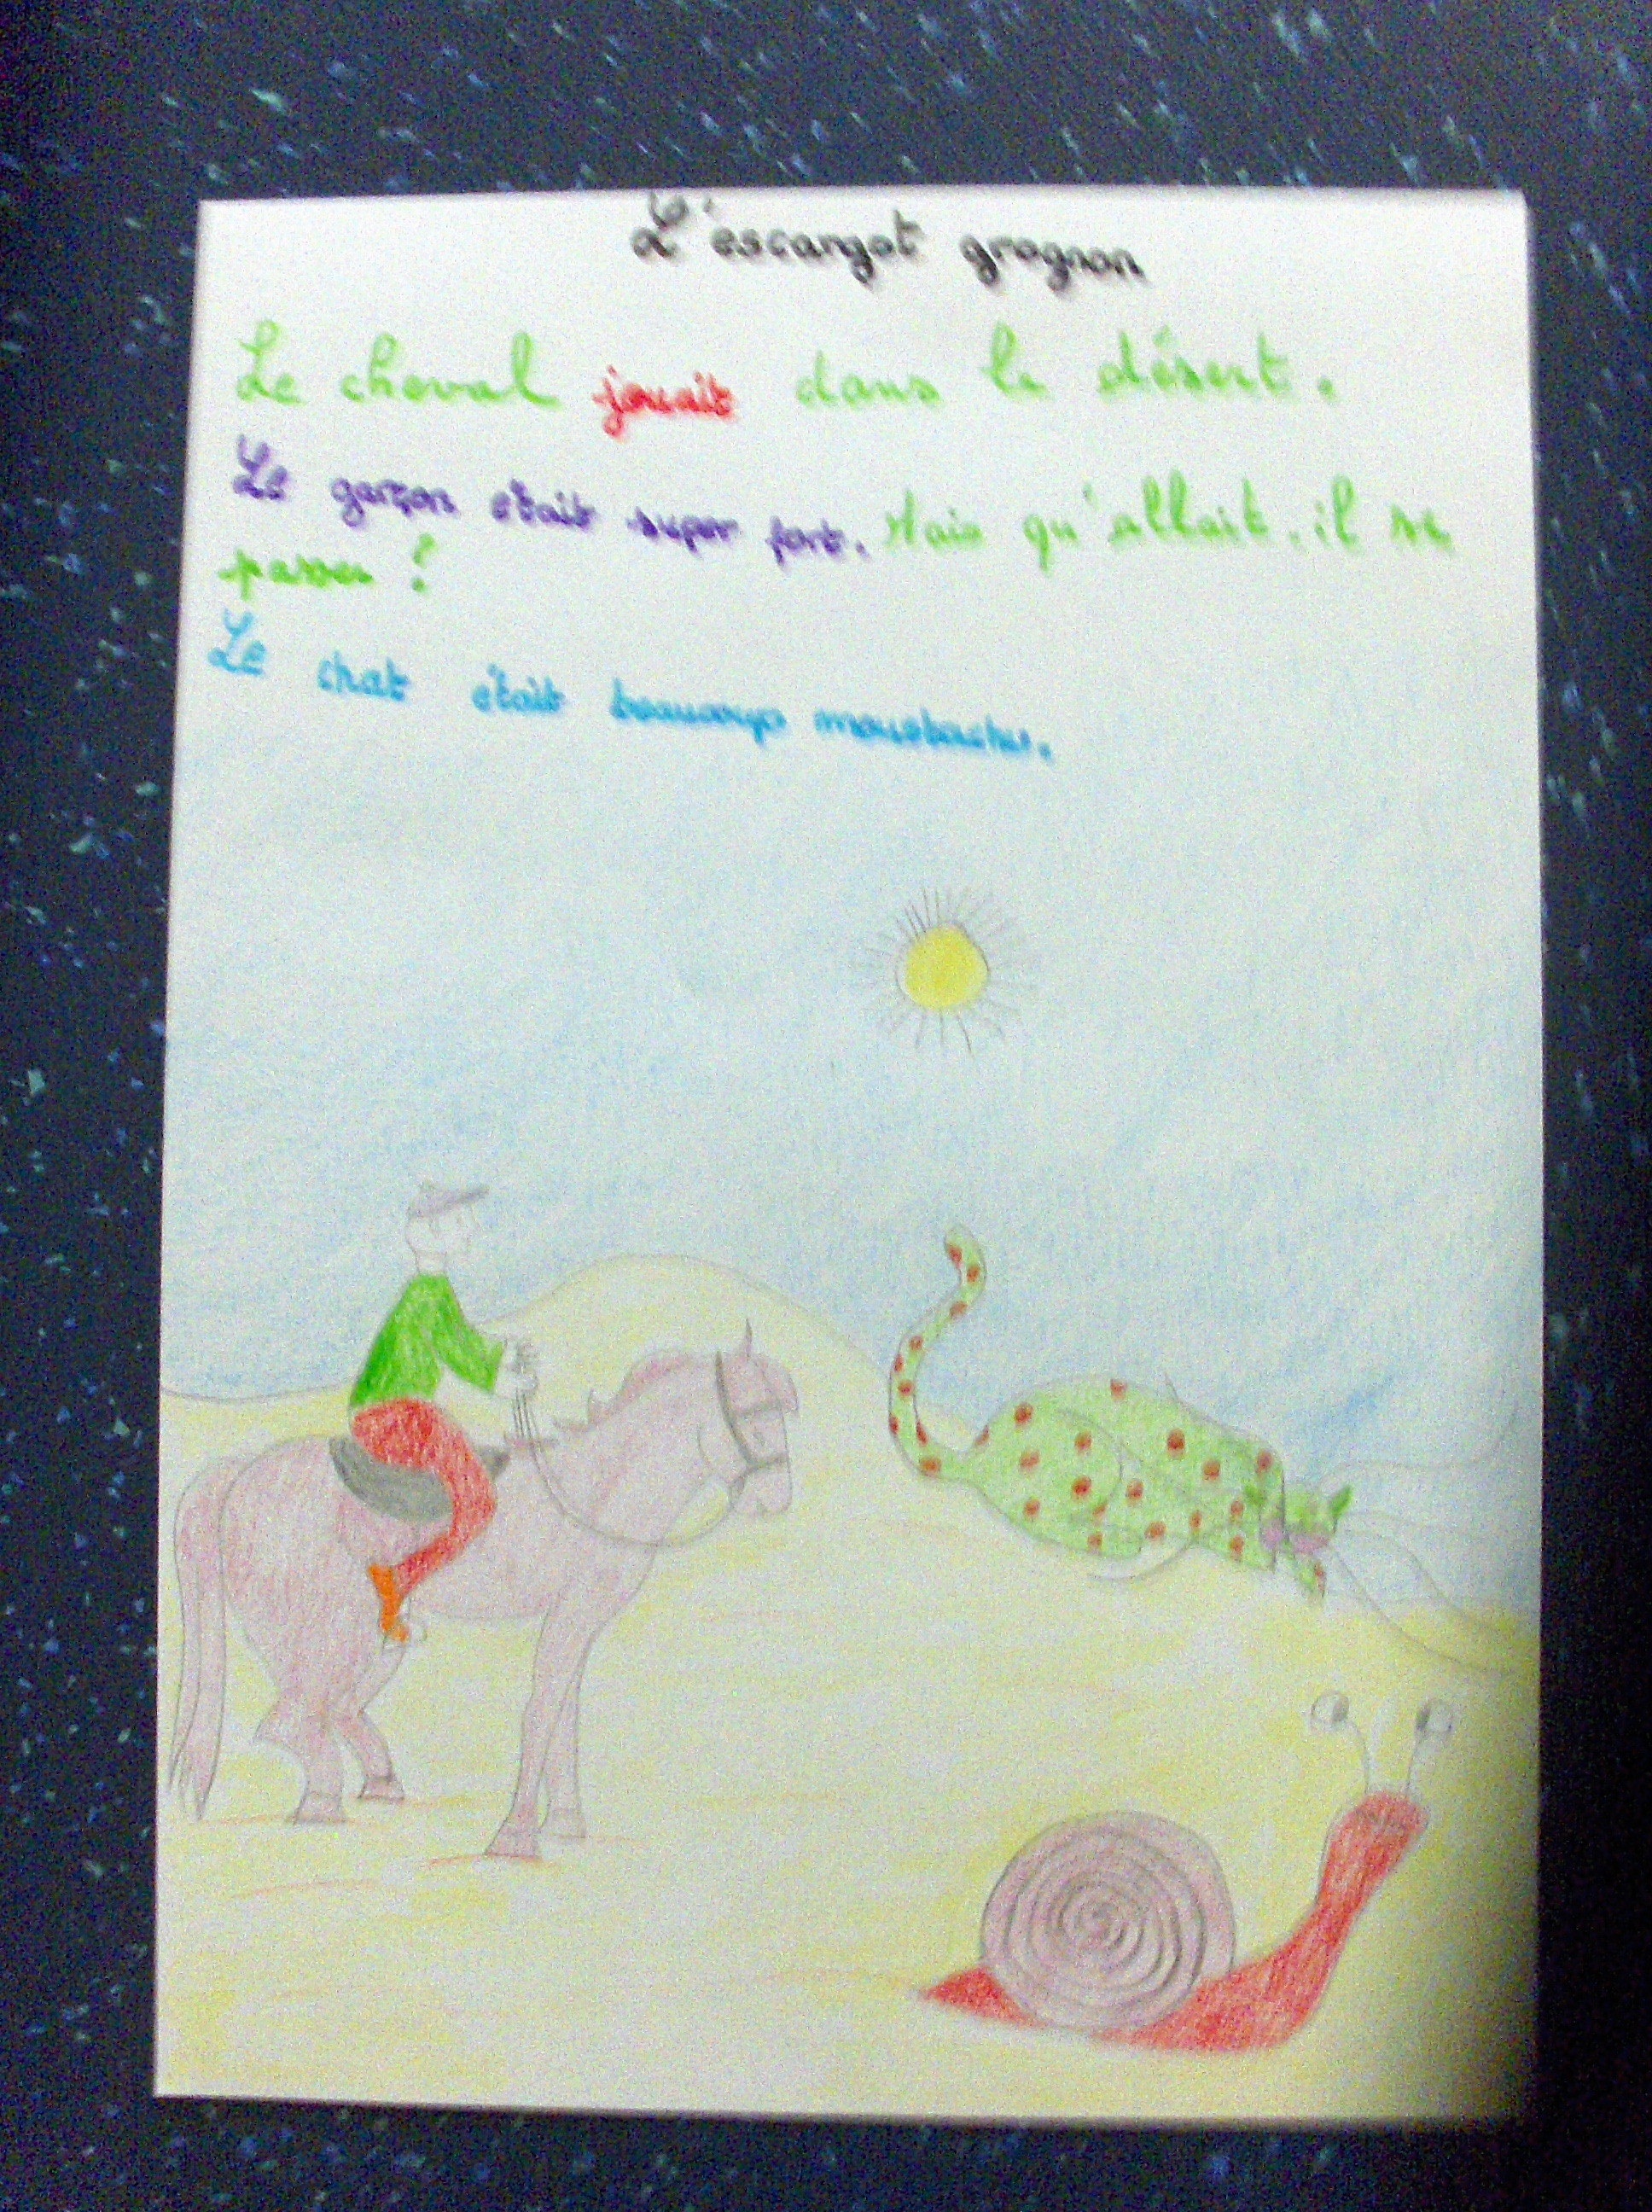 L'escargot grognon
Le cheval jouait dans le désert.
Le garçon était super fort. Mais qu'allait-il se
passer ?
Le chat était beaucoup moustachu.